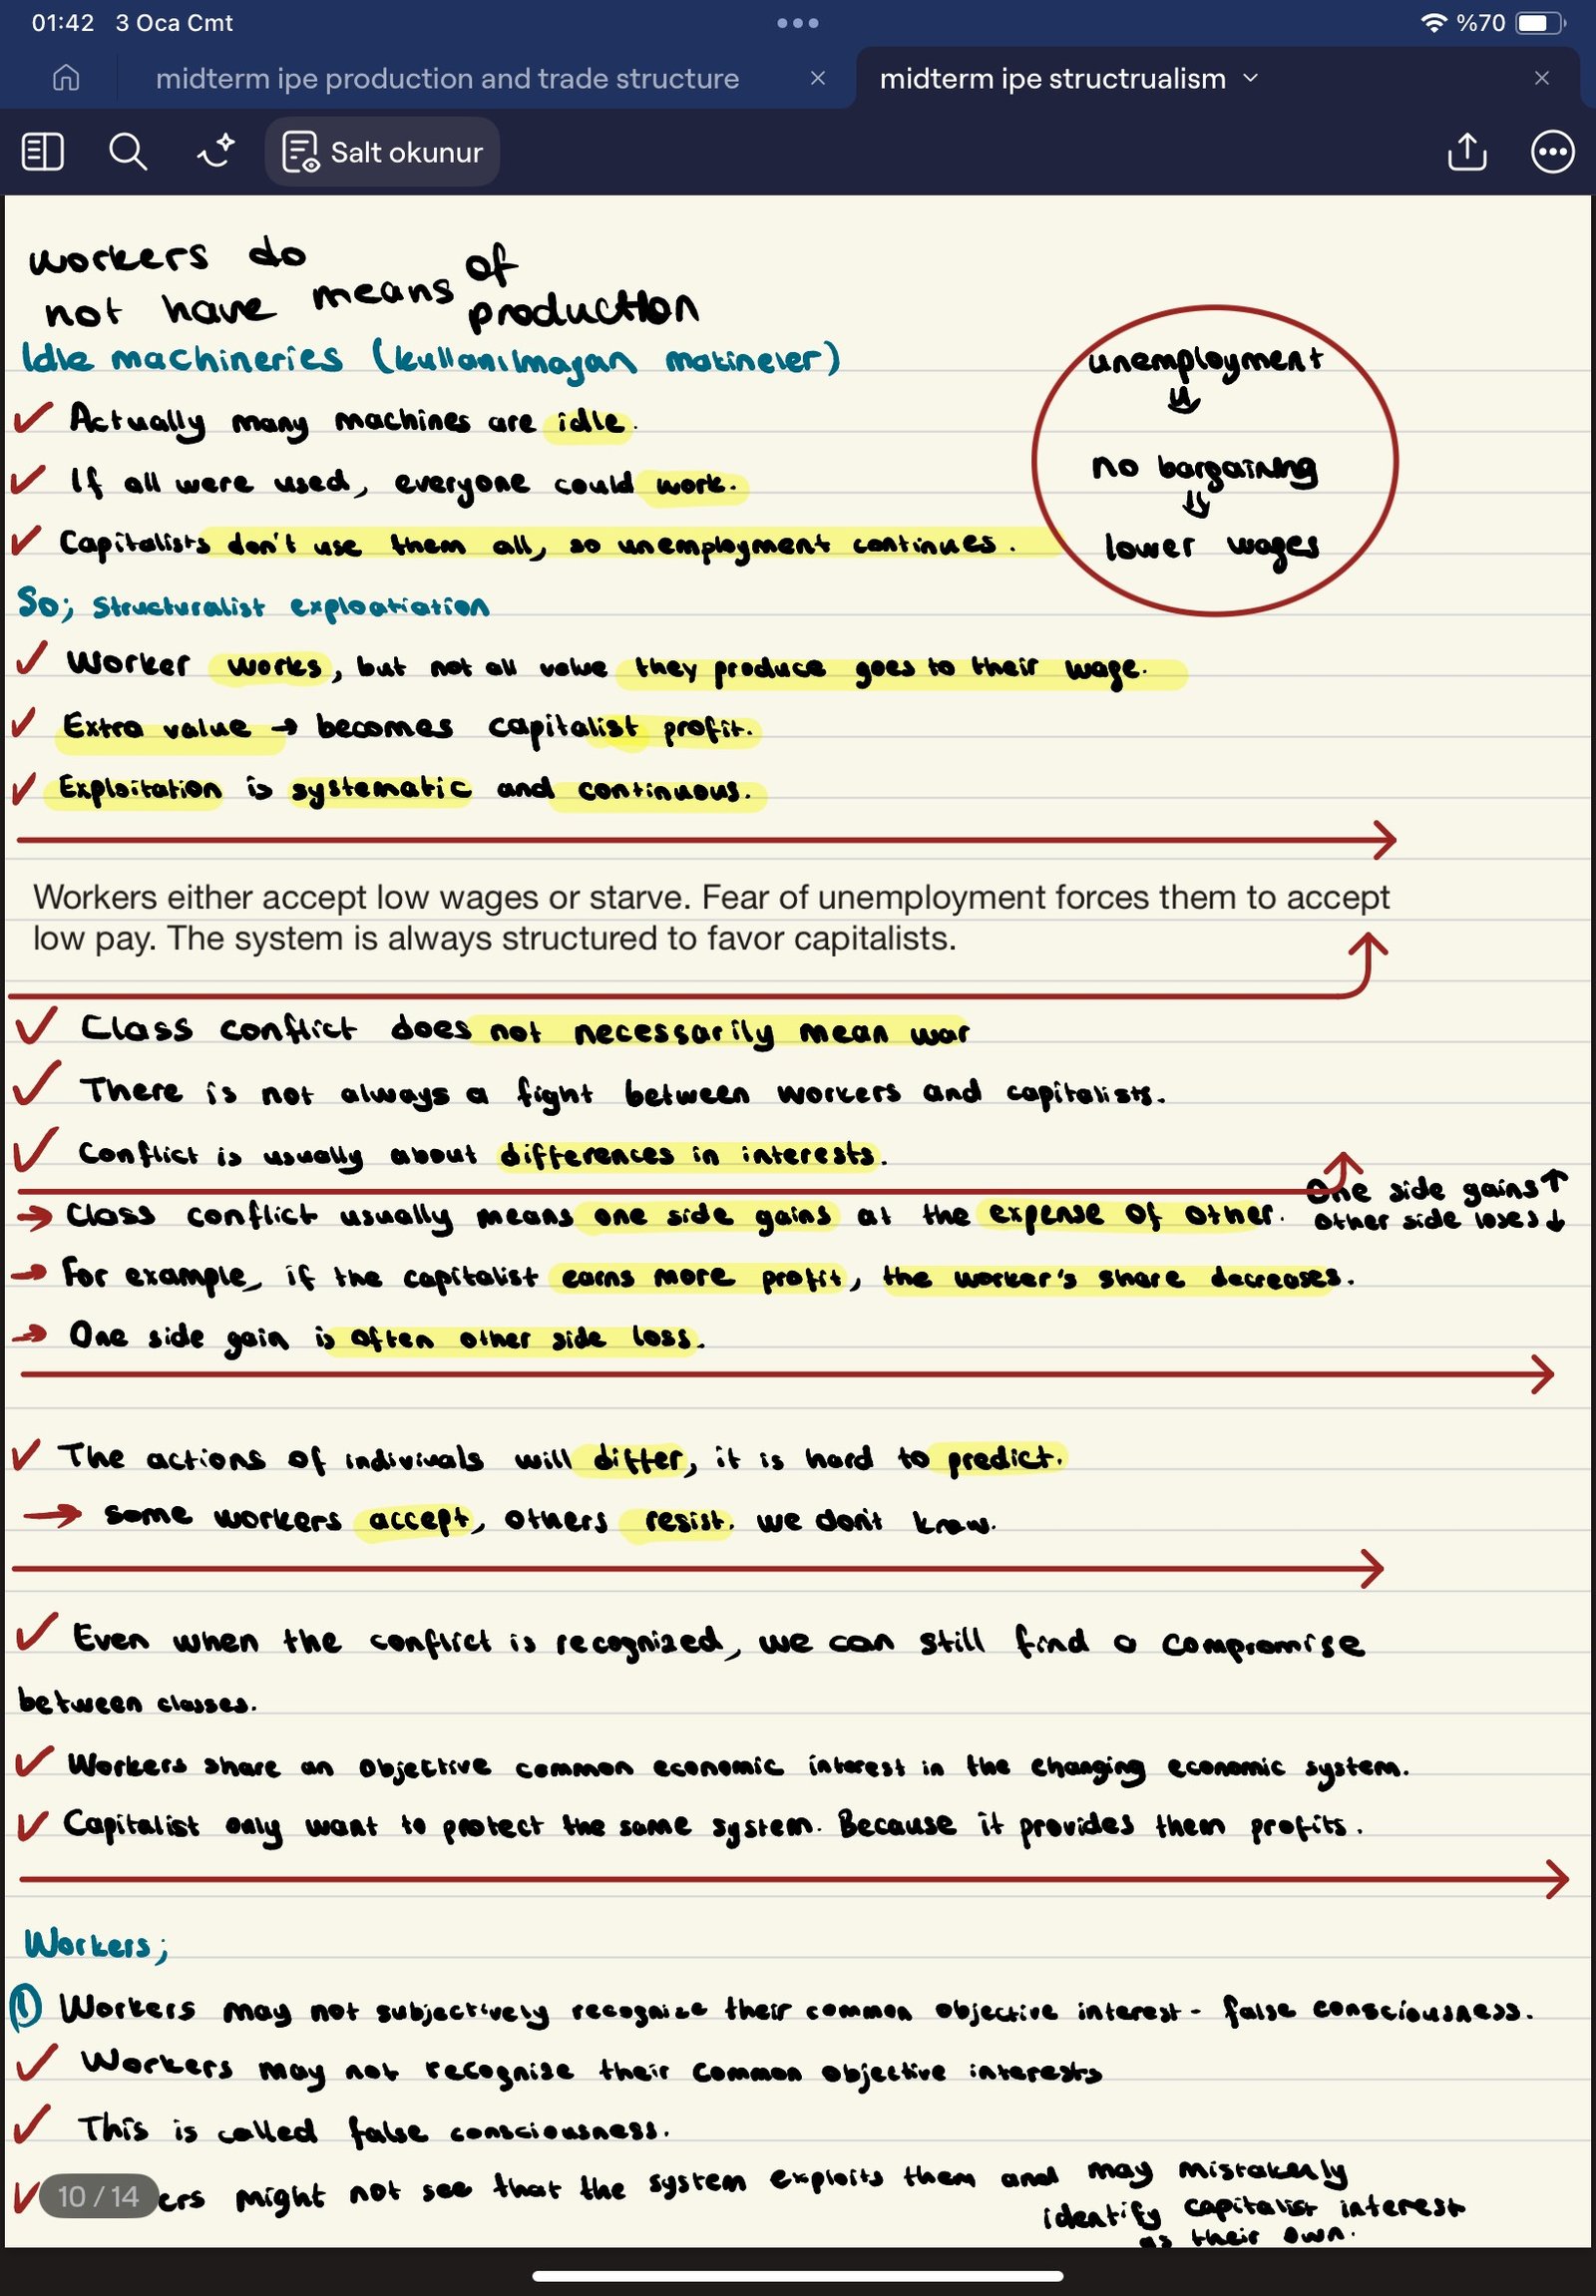 01:42 3 Oca Cmt
%70
midterm ipe production and trade structure
midterm ipe structrualism
Salt okunur
workers do
not have means of
production
Idle machineries (kullanılmayan makineler)
Actually many machines are idle.
If all were used, everyone could work.
Capitalists don't use them all, so unemployment continues.
unemployment
no bargaining
lower wages
So; structuralist exploatiation
Worker works, but not all value they produce goes to their wage.
Extra value → becomes capitalist profit.
Exploitation is systematic and continuous.
Workers either accept low wages or starve. Fear of unemployment forces them to accept
low pay. The system is always structured to favor capitalists.
Class conflict does not necessarily mean war
There is not always a fight between workers and capitalists.
Conflict is usually about differences in interests.
One side gains ↑
other side loses ↓
→ Class conflict usually means one side gains at the expense of other.
→ For example, if the capitalist earns more profit, the worker's share decreases.
→ One side gain is often other side loss.
The actions of indivivals will differ, it is hard to predict.
→ some workers accept, others resist. we don't know.
Even when the conflict is recognized, we can still find a compromise
between classes.
Workers share an objective common economic interest in the changing economic system.
Capitalist only want to protect the same system. Because it provides them profits.
Workers;
1 Workers may not subjectively recognize their common objective interest - false consciousness.
Workers may not recognize their common objective interests
This is called false consciousness.
ers might not see that the system exploits them and may mistakenly
identify capitalist interest
as their own.
10 / 14